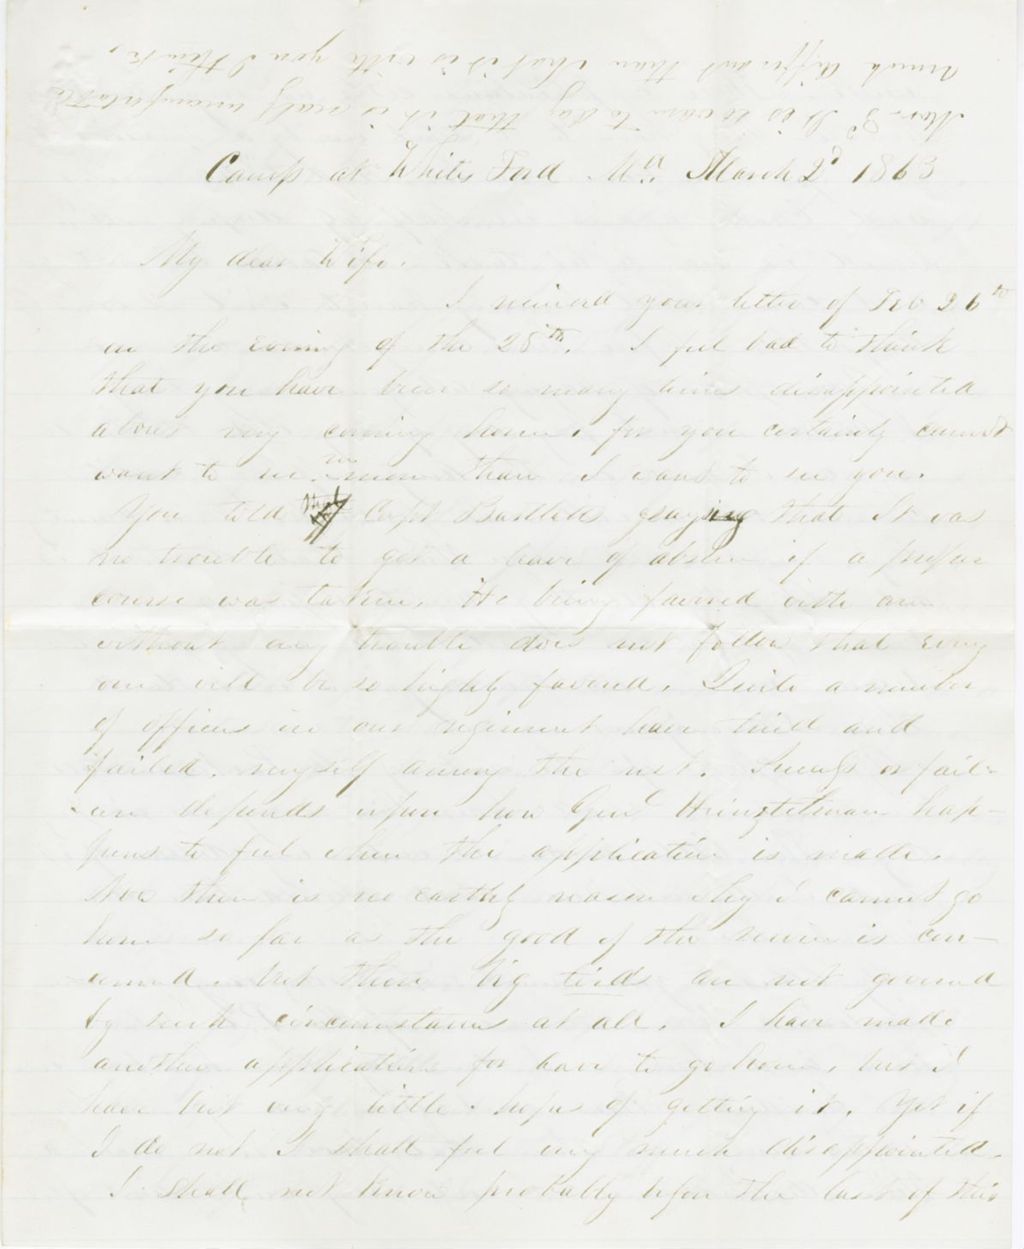 Mar. 3d It is so warm to day that it is really uncomfortable
Much different than what it is with you I think.
Camp at Whites Ford Md. March 2d 1863
My dear Wife.
I received your letter of Feb 26th
on the evening of the 28th. I feel bad to think
that you have been so many times disappointed
about my coming home, for you certainly cannot
want to see me more than I want to see you.
You told that Capt Bartlett saying that it was
no trouble to get a leave of absence if a proper
course was taken. His being favored with one
without any trouble does not follow that every
one will be so highly favored. Quite a number
of officers in our regiment have tried and
failed. myself among the rest. Success or fail-
ure depends upon how Genl Heinztelman hap-
pens to feel when the application is made.
Now there is no earthly reason why I cannot go
home so far as the good of the service is con-
cerned. but these big are not governed
by such circumstances at all. I have made
another application for leave to go home, but I
have but very little hopes of getting it. Yet if
I do not I shall feel very much disappointed.
I shall not know probably before the last of this